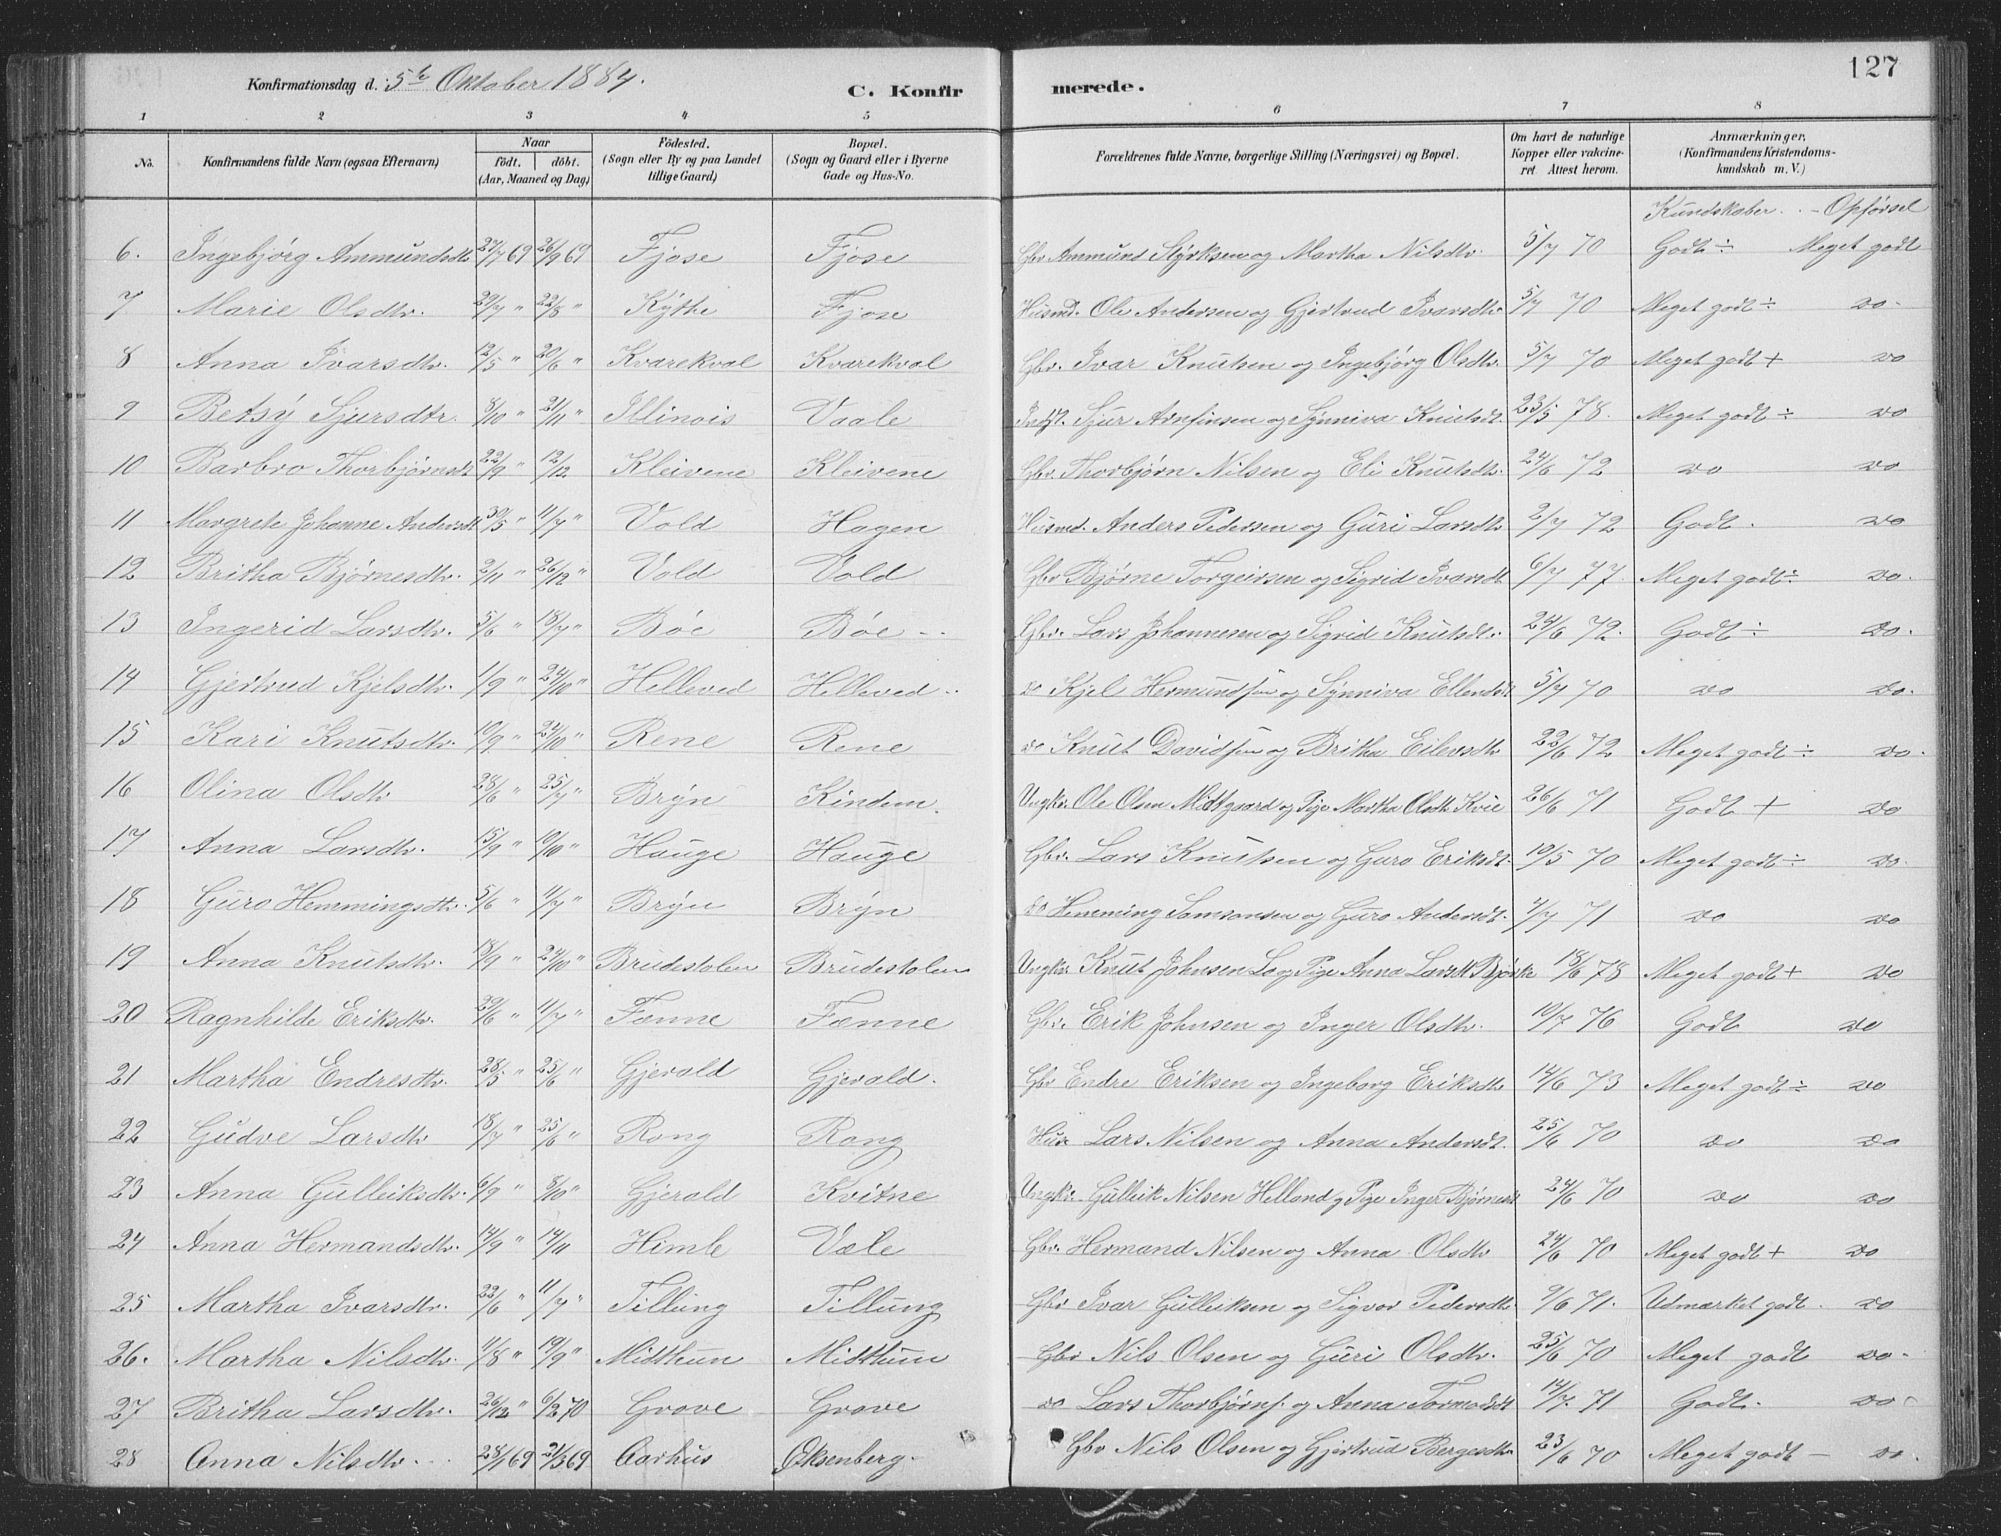 127
Konfirmationsdag d. 5te Oktober 1884.
C. Konfir merede.
1 2 3 4 5 6 7 8
No. Konfirmandens fulde Navn (ogsaa Efternavn) Naar födt. döbt. (Aar, Maaned og Dag) Födested. (Sogn eller By og paa Landet tillige Gaard) Bopæl. (Sogn og Gaard eller i Byerne Gade og Hus-No. Forældrenes fulde Navne, borgerlige Stilling (Næringsvei) og Bopæl. Om havt de naturlige Kopper eller vakcineret. Attest herom. Anmærkninger, (Konfirmandens Kristendomskundskab m. V.)
Kundskaber. - Opførsel
6. Ingebjörg Ammundsdtr 27/7 69 26/9 69 Fjose Fjose Gbr Ammund Styrksen og Martha Nilsdtr. 5/7 70 Godt ÷ Meget godt
7 Marie Olsdtr. 29/7 " 22/8 " Kythe Fjose Husmd. Ole Andersen og Gjertrud Ivarsdtr 5/7 70 Meget godt ÷ do
8 Anna Ivarsdtr. 12/5 " 20/6 " Kvarekval Kvarekval Gbr. Ivar Knutsen og Ingebjörg Olsdtr. 5/7 70 Meget godt + do
9 Betsy Sjursdtr. 8/10 " 21/11 " Illinois Vaale Indst. Sjur Arnfinsen og Synniva Knutsdt. 23/5 78. Meget godt ÷ do
10 Barbro Thorbjørnsdt 22/9 " 12/12 Kleivene Kleivene Gbr. Thorbjørn Nilsen og Eli Knutsdtr. 24/6 72 do do
11 Margrete Johanne Andersdt 30/5 " 11/7 " Vold Hagen Husmd. Anders Pedersen og Guri Larsdtr 2/7 72 Godt. do
12 Britha Bjørnesdtr. 2/11 " 26/12 " Vold Vold Gbr Bjørne Torgeirsen og Sigrid Ivarsdt 6/7 77. Meget godt ÷ do.
13 Ingerid Larsdtr. 5/6 " 18/7 " Bøe Bøe Gbr. Lars Johannesen og Sigrid Knutsdt. 24/6 72. Godt ÷ do.
14 Gjertrud Kjelsdtr. 1/9 " 24/10 " Helleved Helleved do Kjel Hermundsen og Synniva Ellendsdt 5/7 70 do do.
15 Kari Knutsdtr. 10/9 " 24/10 " Rene Rene do Knut Davidsen og Britha Eilevsdtr 22/6 72 Meget godt ÷ do.
16 Olina Olsdtr 28/6 " 25/7 " Bryn Kindem. Ungkr. Ole Olsen Midtgaard og Pige Martha Olsdtr Kvie 26/6 71 Godt + do
17 Anna Larsdtr. 15/9 " 10/10 " Hauge Hauge Gbr. Lars Knutsen og Guro Eriksdt. 10/5 70 Meget godt ÷ do.
18 Guro Hemmingsdtr. 5/6 " 4/7 " Bryn Bryn do Hemming Samsonsen og Guro Andersdt. 4/7 71 do do
19 Anna Knutsdtr. 18/9 " 24/10 " Brudestolen Brudestolen Ungkr Knut Johnsen og Pige Anna Larsdt 18/6 78 Meget godt + do
20 Ragnhilde Eriksdtr. 29/6 " 11/7 " Fænne Fænne Gbr. Erik Johnsen og Inger Olsdtr. 10/7 76 Godt do
21 Martha Endresdtr. 28/5 " 25/6 " Gjerald Gjerald. Gbr Endre Eriksen og Ingeborg Eriksdtr 14/6 73 Meget godt ÷ do
22 Gudve Larsdtr 18/7 " 25/6 " Rong Rong Hus Lars Nilsen og Anna Andersdt. 25/6 70 do do
23 Anna Gulleiksdtr. 6/9 " 8/10 " Gjerald Kvitne Ungkr. Gulleik Nilsen Helland og Pige Inger Bjørnesdt 24/6 70 do do
24 Anna Hermandsdtr. 14/9 " 14/11 Himle Væle Gbr. Hermand Nilsen og Anna Olsdtr 24/6 70 Meget godt + do
25 Martha Ivarsdtr. 22/6 " 11/7 " Tillung Tillung Gbr Ivar Gulleiksen og Sigvor Pedersdtr. 9/6 71. Udmærket godt. do
26. Martha Nilsdtr. 4/8 " 19/9 " Midthun Midthun Gbr Nils Olsen og Guri Olsdtr. 25/6 70 Meget godt do.
27 Britha Larsdtr. 26/12 " 6/2 70 Grove Grove do Lars Thorbjørns. og Anna Tormodsdt 14/7. 71 Godt. do
28 Anna Nilsdtr. 28/1 69 21/3 69 Aarhus Øksenberg. Gbr Nils Olsen og Gjertrud Bergesdtr 23/6 70 Meget godt do.